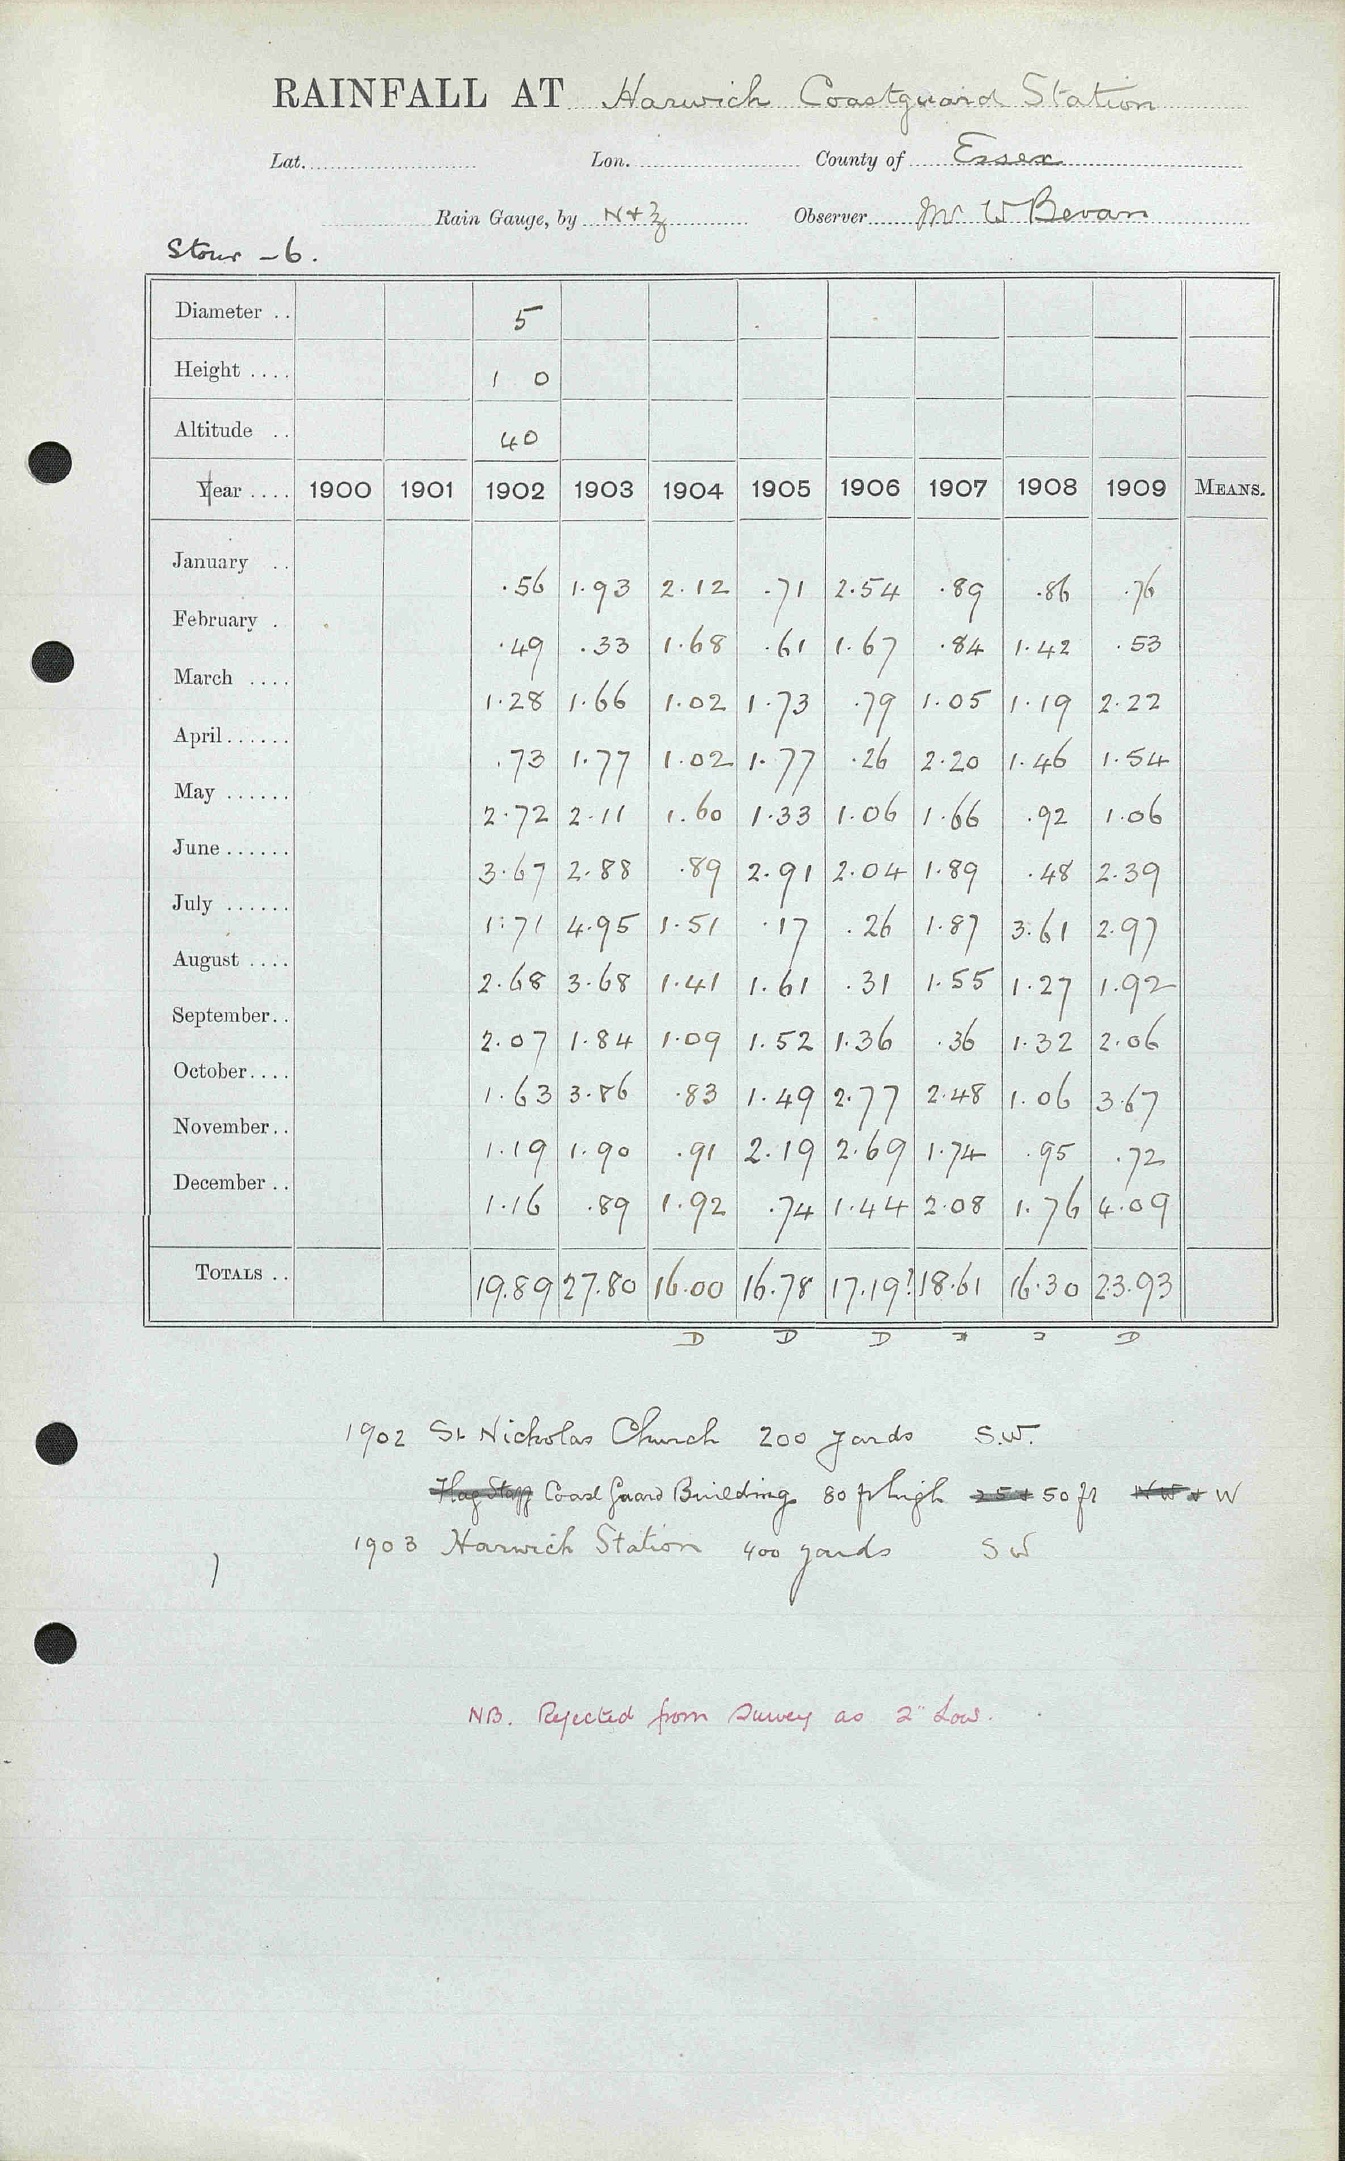 RAINFALL AT Harwich Coastguard Station
Lat. Lon. County of Essex
Rain Gauge, by N+Z Observer Mr W Bevan
Stour - 6.
Diameter .. 5
Height .... 1 0
Altitude .. 40
Year .... 1900 1901 1902 1903 1904 1905 1906 1907 1908 1909 MEANS.
January .. .56 1.93 2.12 .71 2.54 .89 .86 .76
February . .49 .33 1.68 .61 1.67 .84 1.42 .53
March .... 1.28 1.66 1.02 1.73 .79 1.05 1.19 2.22
April...... .73 1.77 1.02 1.77 .26 2.20 1.46 1.54
May ...... 2.72 2.11 1.60 1.33 1.06 1.66 .92 1.06
June...... 3.67 2.88 .89 2.91 2.04 1.89 .48 2.39
July ...... 1.71 4.95 1.51 .17 .26 1.87 3.61 2.97
August .... 2.68 3.68 1.41 1.61 .31 1.55 1.27 1.92
September.. 2.07 1.84 1.09 1.52 1.36 .36 1.32 2.06
October.... 1.63 3.86 .83 1.49 2.77 2.48 1.06 3.67
November.. 1.19 1.90 .91 2.19 2.69 1.74 .95 .72
December .. 1.16 .89 1.92 .74 1.44 2.08 1.76 4.09
TOTALS .. 19.89 27.80 16.00 16.78 17.19? 18.61 16.30 23.93
D D D D
1902 St Nickolas Church 200 yards S.W.
Flag Staff Coast Guard Buildings 80 ft high 25+ 50 ft NW + W
1903 Harwich Station 400 yards SW
NB. Rejected from Survey as 2" Low.